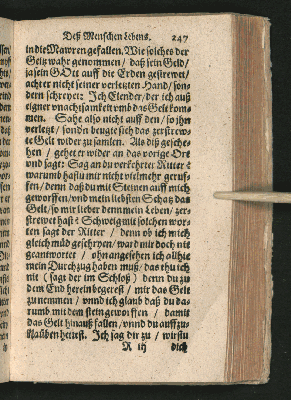 Deß Menschen Lebens. 247
in die Mawren gefallen. Wie solches der
Geitz wahr genommen / daß sein Geld /
ja sein GOtt auff die Erden gestrewet /
achtet er nicht seiner verletzten Hand / son-
dern schreyet: Ich Elender, der ich auß
eigner vnachtsamkeit vmb das Gelt kom-
men. Sahe also nicht auff den / so ihn
verletzt / sondn beugte sich das zerstrew-
te Gelt wider zu samlen. Als diß gesche-
hen / gehet er wider an das vorige Ort
vnd sagt: Sag an du verkehrter Ritter /
warumb hastu mir nicht vielmehr geruf-
fen / denn daß du mit Steinen auff mich
geworffen / vnd mein liebsten Schatz das
Gelt / so mir lieber denn mein Leben / zer-
strewet hast? Schweig mit solchen wor-
ten sagt der Ritter / denn ob ich mich
gleich müd geschryen / ward mir doch nit
geantwortet / ohnangesehen ich allhie
mein Durchzug haben muß / das thu ich
nit (sagt der im Schloß) denn du zu
dem End herein begerest / mit das Gelt
zu nemmen / vnnd ich glaub daß du da-
rumb mit dem stein geworffen / damit
das Gelt hinauß fallen / vnnd du auff zu-
klauben hettest. Ich sag dir zu / wirstu
R iij dich